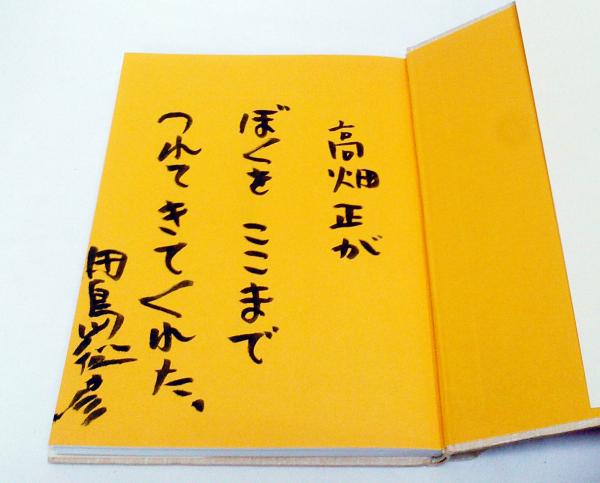 高畑正が
ぼくを ここまで
つれてきてくれた、
田島征彦